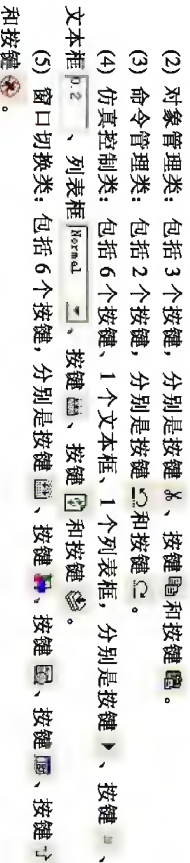 (2) 对象管理类：包括 3 个按键，分别是按键、按键和按键。
(3) 命令管理类：包括 2 个按键，分别是按键和按键。
(4) 仿真控制类：包括 6 个按键、1 个文本框、1 个列表框，分别是按键、按键、
文本框 0.2 、列表框 Normal 、按键、按键和按键。
(5) 窗口切换类：包括 6 个按键，分别是按键、按键、按键、按键、按键
和按键。